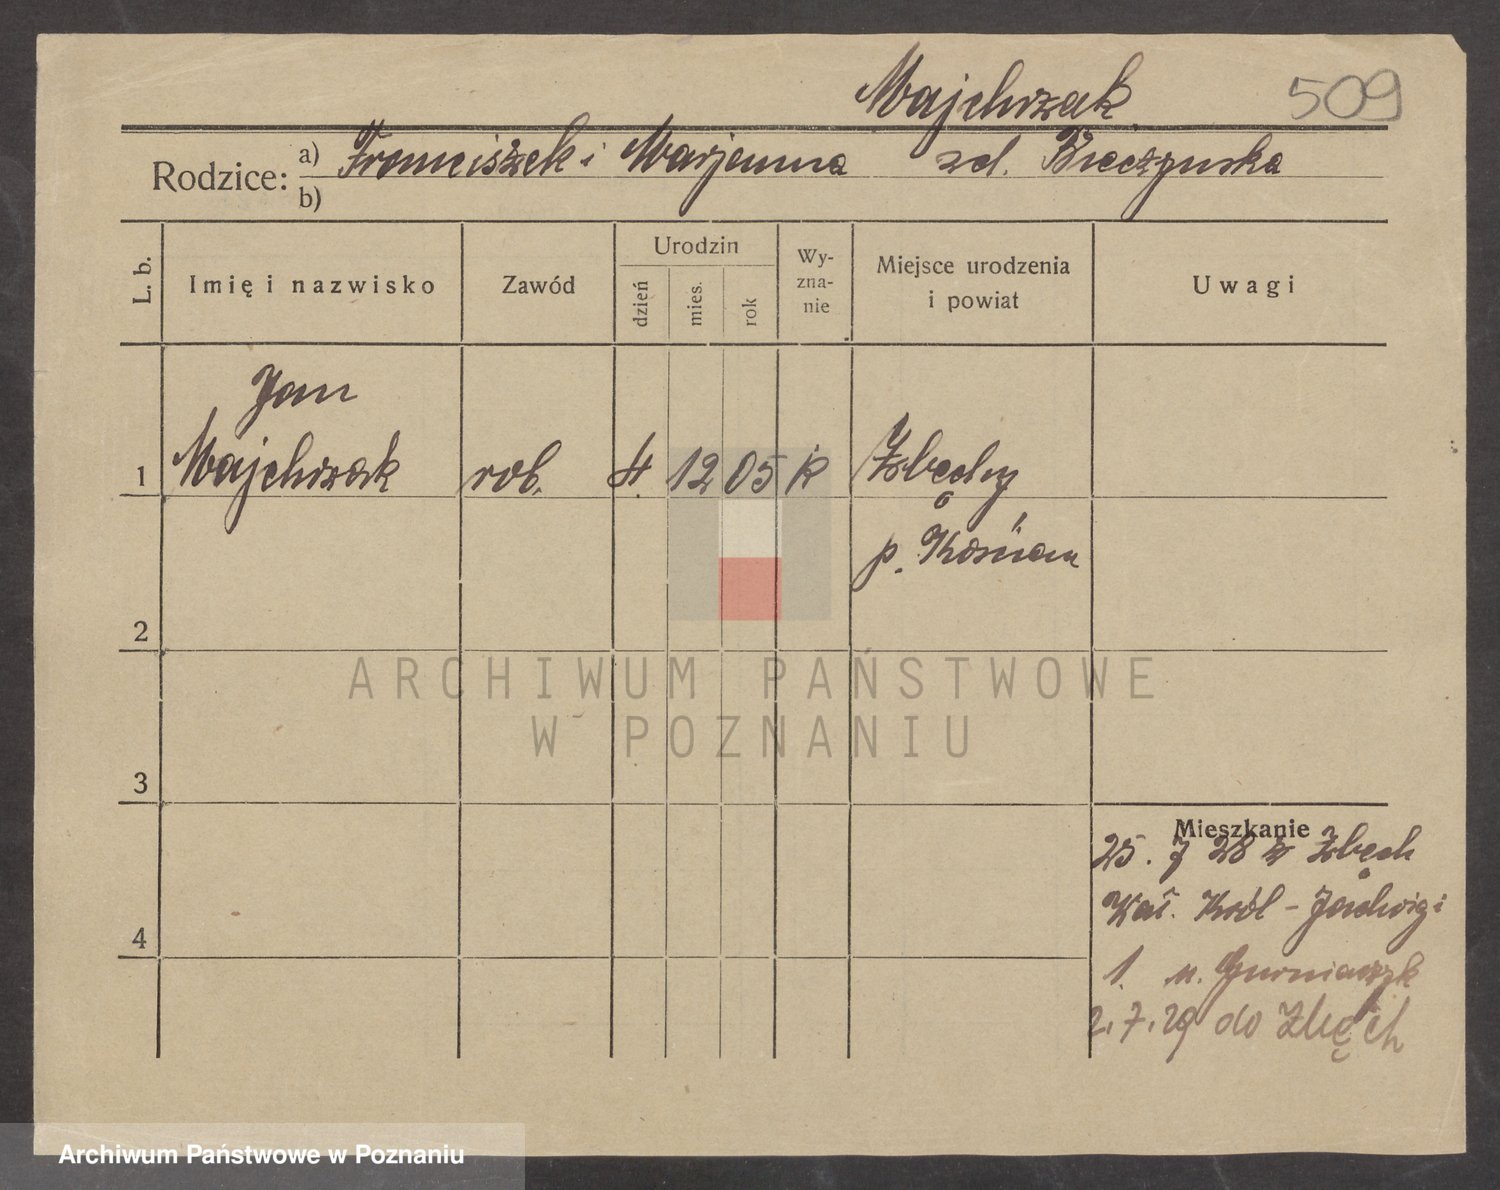 Majchrzak
509
Rodzice: a) Franciszek i Marjanna zd. Bieczyńska
b)
L. b.
Imię i nazwisko
Zawód
Urodzin
dzień
mies.
rok
Wy-
zna-
nie
Miejsce urodzenia
i powiat
Uwagi
Jan
1 Majchrzak rob. 4 12 05 k Zbęchy
p. Kościan
2
3
4
Mieszkanie
25. 7 28 z Zbęch
Król - Jadwigi
1. u.
2.7.29 do Zbęch
ARCHIWUM PAŃSTWOWE
W POZNANIU
Archiwum Państwowe w Poznaniu